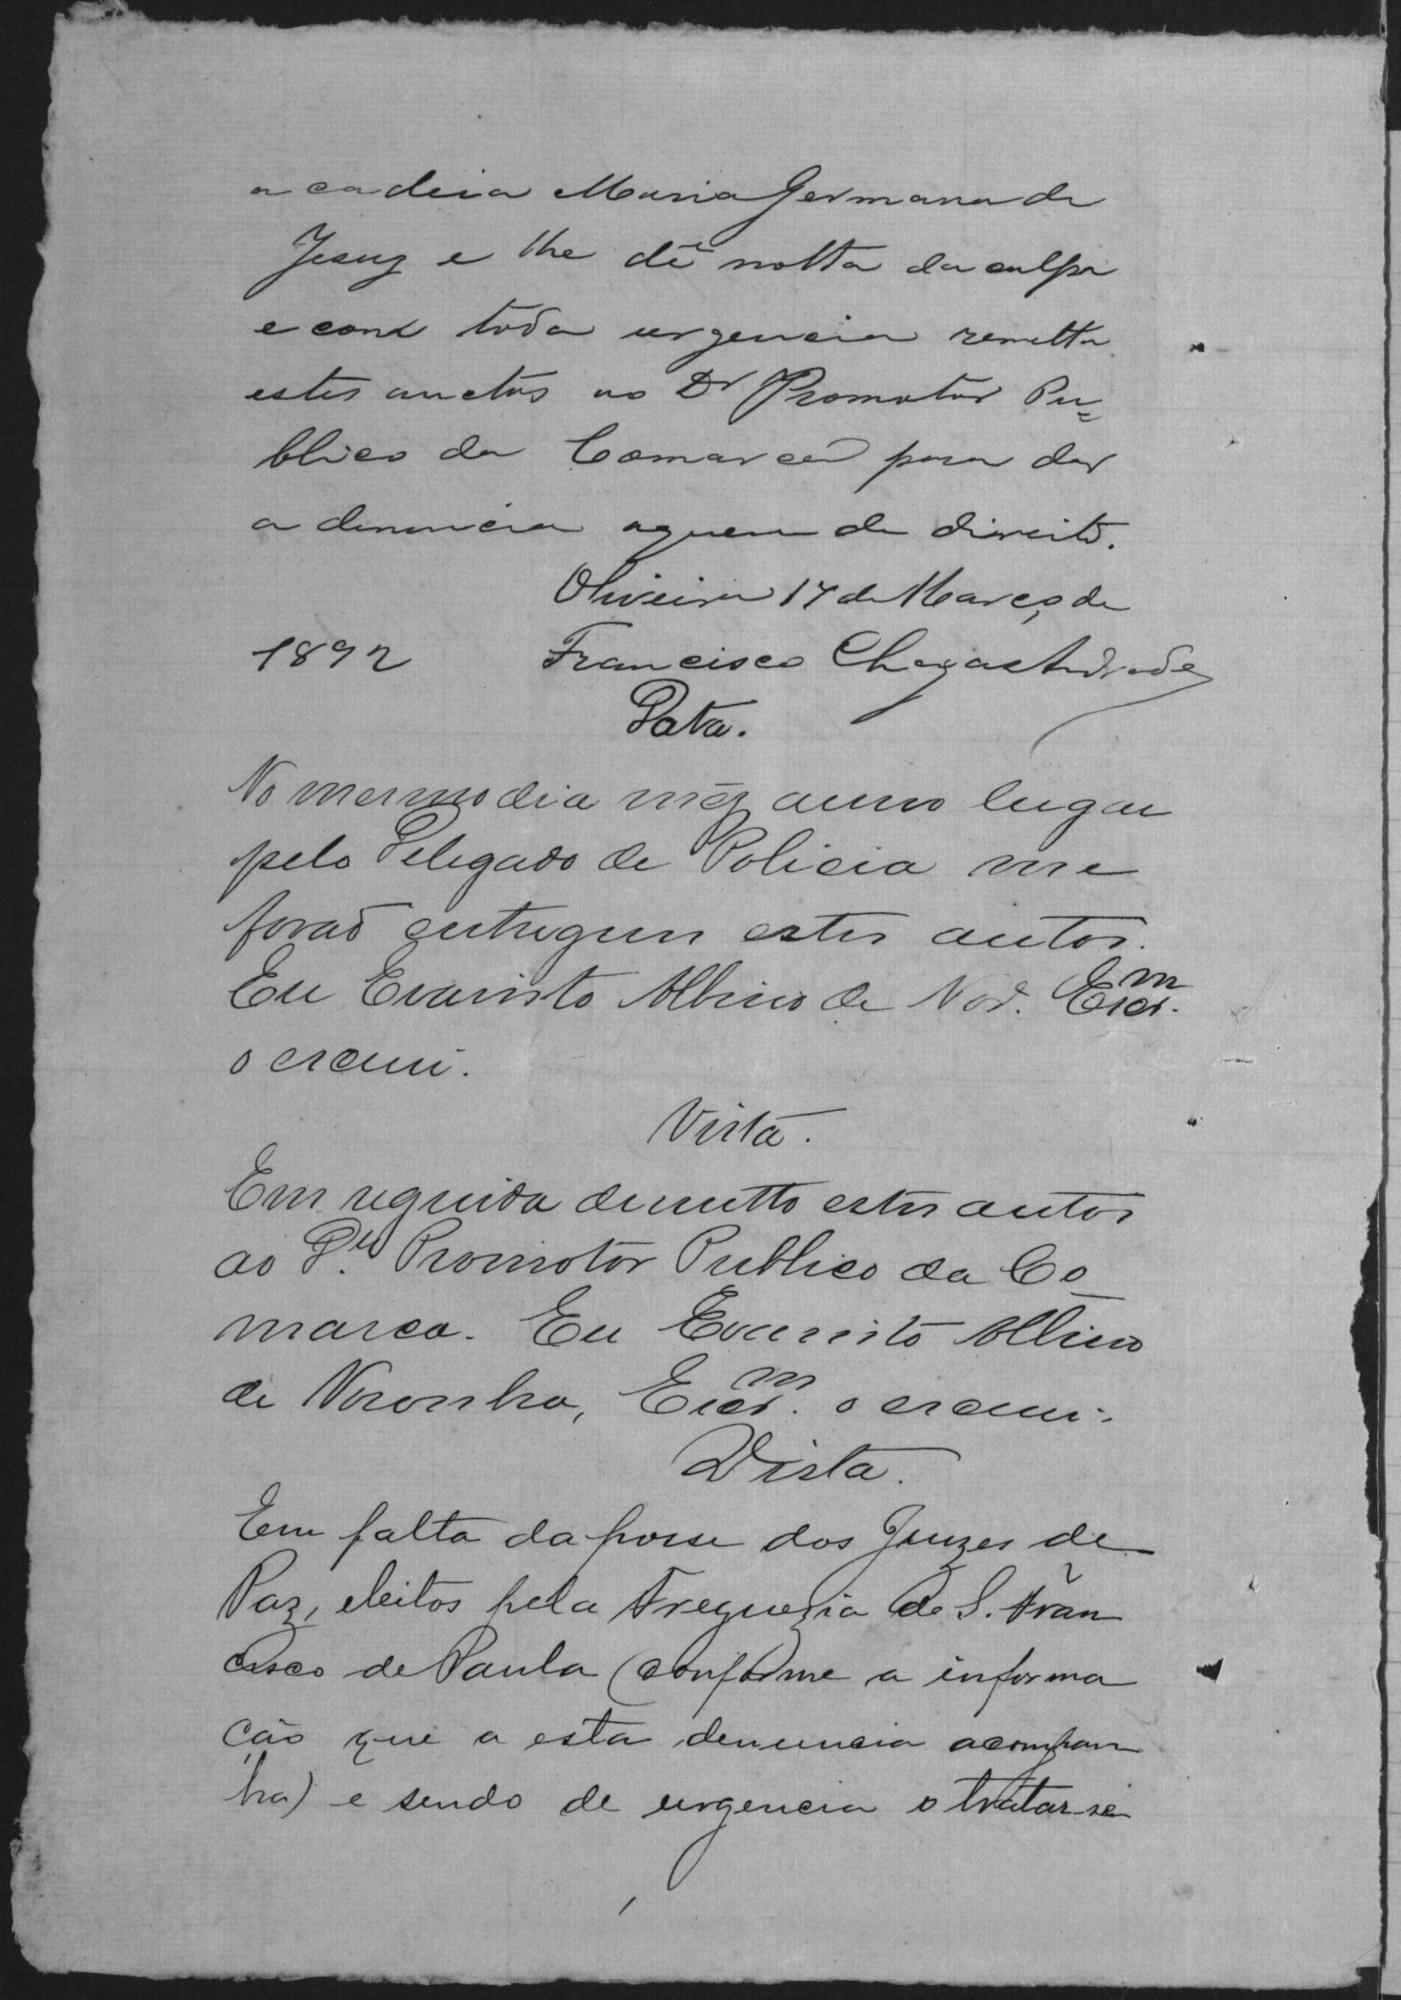 a cadeia Maria Germana de
Jesuz e lhe dê notta da culpa
e com toda urgencia remetta
estes auctos ao Dr Promotor Pu=
blico da Comarca para dar
a denuncia aquem de direito.
Oliveira 17 de Março de
1892 Francisco Chagas Andrade
Data.
No mesmo dia mêz anno lugar
pelo Delegado de Policia me
forão entregues estes autos.
Eu Evaristo Albino de Nor.ª Escr.m
o escrevi.
Vista.
Em seguida remetto estes autos
ao Dr. Promotor Publico da Co
marca. Eu Evaristo Albino
de Noronha, Escr.m o escrevi.
Vista.
Em falta da posse dos Juizes de
Paz, eleitos pela Freguezia de S. Fran
cisco de Paula (conforme a informa
ção que a esta denuncia acompan
ha) e sendo de urgencia o tratar-se